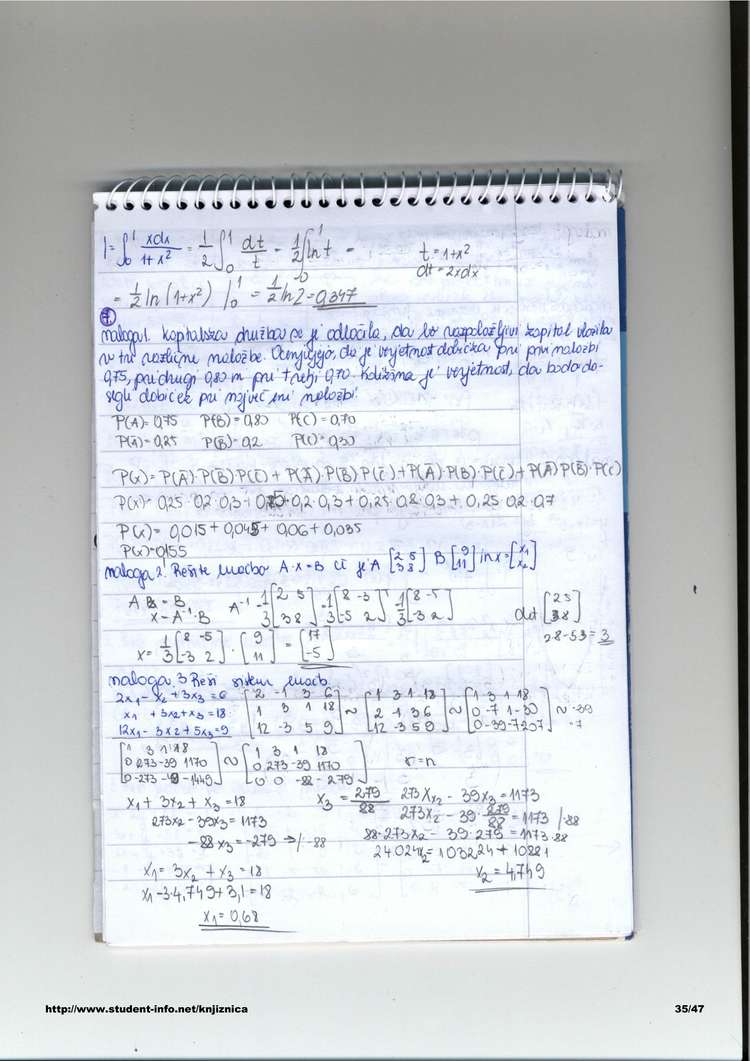 I = ∫₀¹ xdx/(1+x²) = 1/2 ∫₀¹ dt/t = 1/2 ∫₀¹ ln t =
t = 1+x²
dt = 2xdx
= 1/2 ln(1+x²) |₀¹ = 1/2 ln2 = 0,347
naloga1. Kapitalska družba se je odločila, da bo razpoložljivi kapital vložila
v tri različne naložbe. Ocenjujejo, da je verjetnost dobička pri prvi naložbi
0,75, pri drugi 0,80 in pri tretji 0,70. Kolikšna je verjetnost, da bodo do-
segli dobiček pri največ eni naložbi?
P(A)= 0,75 P(B)= 0,80 P(C)= 0,70
P(A̅)= 0,25 P(B̅)= 0,2 P(C̅)= 0,30
P(x)= P(A̅)·P(B̅)·P(C̅) + P(A)·P(B̅)·P(C̅) + P(A̅)·P(B)·P(C̅) + P(A̅)·P(B̅)·P(C)
P(x)= 0,25·0,2·0,3 + 0,75·0,2·0,3 + 0,25·0,8·0,3 + 0,25·0,2·0,7
P(x)= 0,015 + 0,045 + 0,06 + 0,035
P(x)=0,155
naloga 2. Rešite enačbo A·X=B če je A [2 5; 3 8] B [9; 11] in x=[x₁; x₂]
= B
x = A⁻¹·B
A⁻¹ = 1/3 [2 5; 3 8] = 1/3 [8 -3; -5 2] = 1/3 [8 -5; -3 2]
det [2 5; 3 8]
2·8-5·3=3
x= 1/3 [8 -5; -3 2] · [9; 11] = [17; -5]
naloga 3 Reši sistem enačb
2x₁ - x₂ + 3x₃ = 6
x₁ + 3x₂ + x₃ = 18
12x₁ - 3x₂ + 5x₃ = 9
[2 -1 3 6; 1 3 1 18; 12 -3 5 9] ~ [1 3 1 18; 2 -1 3 6; 12 -3 5 9] ~ [1 3 1 18; 0 -7 1 -30; 0 -39 -7 207] ~ ·-39
·-7
[1 3 1 18; 0 273 -39 1170; 0 -273 -49 -1449] ~ [1 3 1 18; 0 273 -39 1170; 0 0 -88 -279]
r=n
x₁ + 3x₂ + x₃ = 18
273x₂ - 39x₃ = 1173
-88x₃ = -279 → /·-88
x₃ = 279/88
273x₂ - 39x₃ = 1173
273x₂ - 39·279/88 = 1173 /·88
88·273x₂ - 39·279 = 1173·88
24.024x₂ = 103224 + 10881
x₂ = 4,749
x₁ = 3x₂ + x₃ = 18
x₁ - 3·4,749 + 3,1 = 18
x₁ = 0,68
http://www.student-info.net/knjiznica
35/47